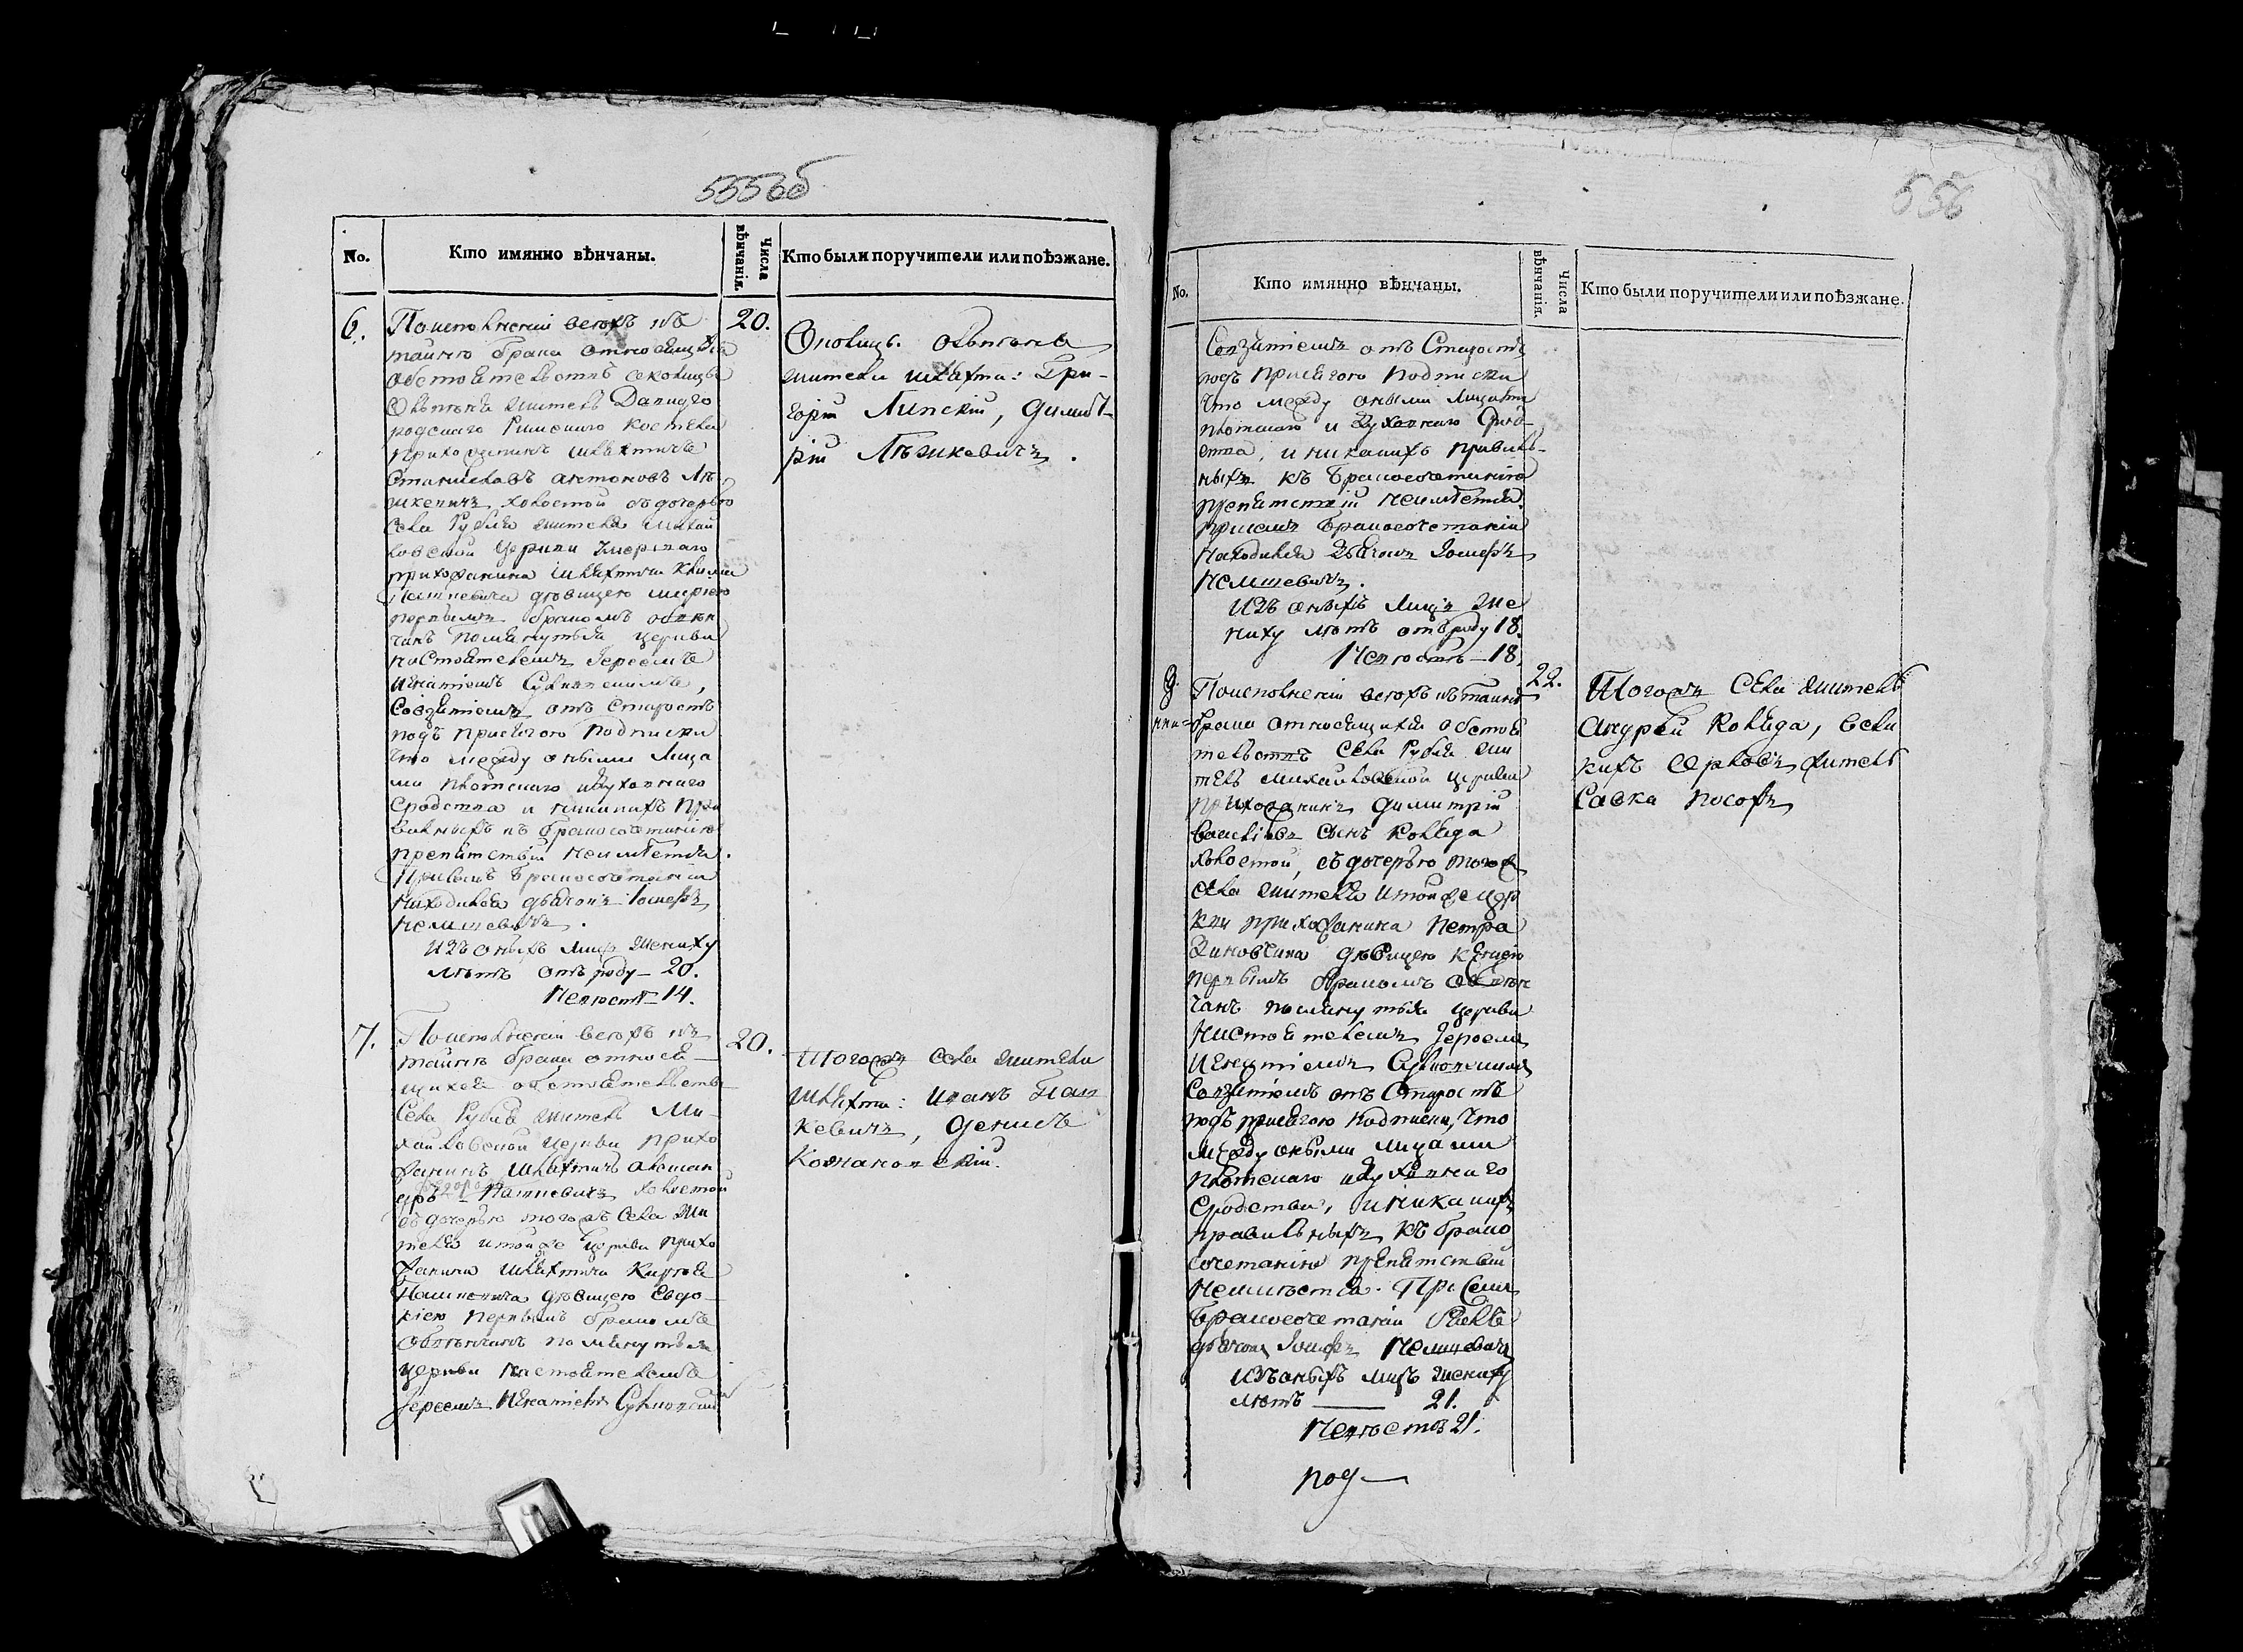 555об
No.
Кто имянно вѣнчаны.
Числа вѣнчанія.
Кто были поручители или поѣзжане.
6.
По исполненіи всѣхъ къ
тайнѣ брака относящихся
обстоятельствъ соколицы
житель Давидго
родскаго Римскаго костела
прихожанинъ шляхтичъ
Станиславъ Антоновъ Лѣ
шкевичъ холостой съ дочерью
Села Рубля жителя Михай
ловской Церкви умершаго
прихожанина шляхтича
Пашкевича дѣвицею Маріею
первымъ бракомъ обвѣн
чанъ помянутыя церкви
настоятелемъ Іереемъ
Игнатіемъ
Совзятіемъ отъ Старостъ
подъ присягою подписки
что между оными лица
ми плотскаго и духовнаго
сродства и никакихъ пра
вильныхъ къ бракосочетанію
препятствій неимѣется.
При семъ бракосочетаніи
находился дьячокъ Іосифъ
Немшевичъ.
Изъ оныхъ лицъ жениху
лѣтъ отъ роду – 20.
Невѣстѣ – 14.
20.
жители шляхта: Гри-
горій Липскій, Димит-
рій Лѣшкевичъ.
7.
По исполненіи всѣхъ къ
тайнѣ брака относя-
щихся обстоятельствъ
Села Рубля житель Ми-
хайловской Церкви прихо
жанинъ шляхтичъ Алексан
дръ Пашкевичъ холостой
съ дочерью тогожъ Села жи
теля и тойже Церкви прихо
жанина шляхтича
Пашкевича дѣвицею Евдо-
кіею первымъ бракомъ
обвѣнчанъ помянутыя
церкви настоятелемъ
Іереемъ Игнатіемъ
20.
Тогожъ Села жители
шляхта: Иванъ Паш
кевичъ, Денисъ
556
No.
Кто имянно вѣнчаны.
Числа вѣнчанія.
Кто были поручители или поѣзжане.
Совзятіемъ отъ Старостъ
подъ присягою подписки
что между оными лицами
плотскаго и духовнаго срод
ства, и никакихъ правиль-
ныхъ къ бракосочетанію
препятствій неимѣется.
При семъ бракосочетаніи
находился дьячокъ Іосифъ
Немшевичъ.
Изъ оныхъ лицъ же
ниху лѣтъ отъ роду 18.
Невѣстѣ – 18.
По исполненіи всѣхъ къ тайнѣ
брака относящихся обстоя
тельствъ Села Рубля жи
тель Михайловской церкви
прихожанинъ Димитрій
Василіевъ сынъ Коляда
холостой, съ дочерью тогожъ
села жителя и тойже цер
кви прихожанина Петра
дѣвицею Ксеніею
первымъ бракомъ обвѣн
чанъ помянутыя церкви
Настоятелемъ Іереемъ
Игнатіемъ
Совзятіемъ отъ Старостъ
подъ присягою подписки, что
между оными лицами
плотскаго и духовнаго
сродства, и никакихъ
правильныхъ къ брако
сочетанію препятствій
неимѣется. При семъ
бракосочетаніи былъ
дьячокъ Іосифъ Немшевичъ
Изъ оныхъ лицъ жениху
лѣтъ — 21.
Невѣстѣ 21.
22.
Тогожъ Села житель
Андрей Коляда, Вели
кихъ житель
Савка
под—